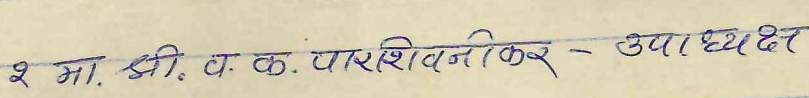 २ मा. श्री. व. क. पारशिवनीकर - उपाध्यक्ष